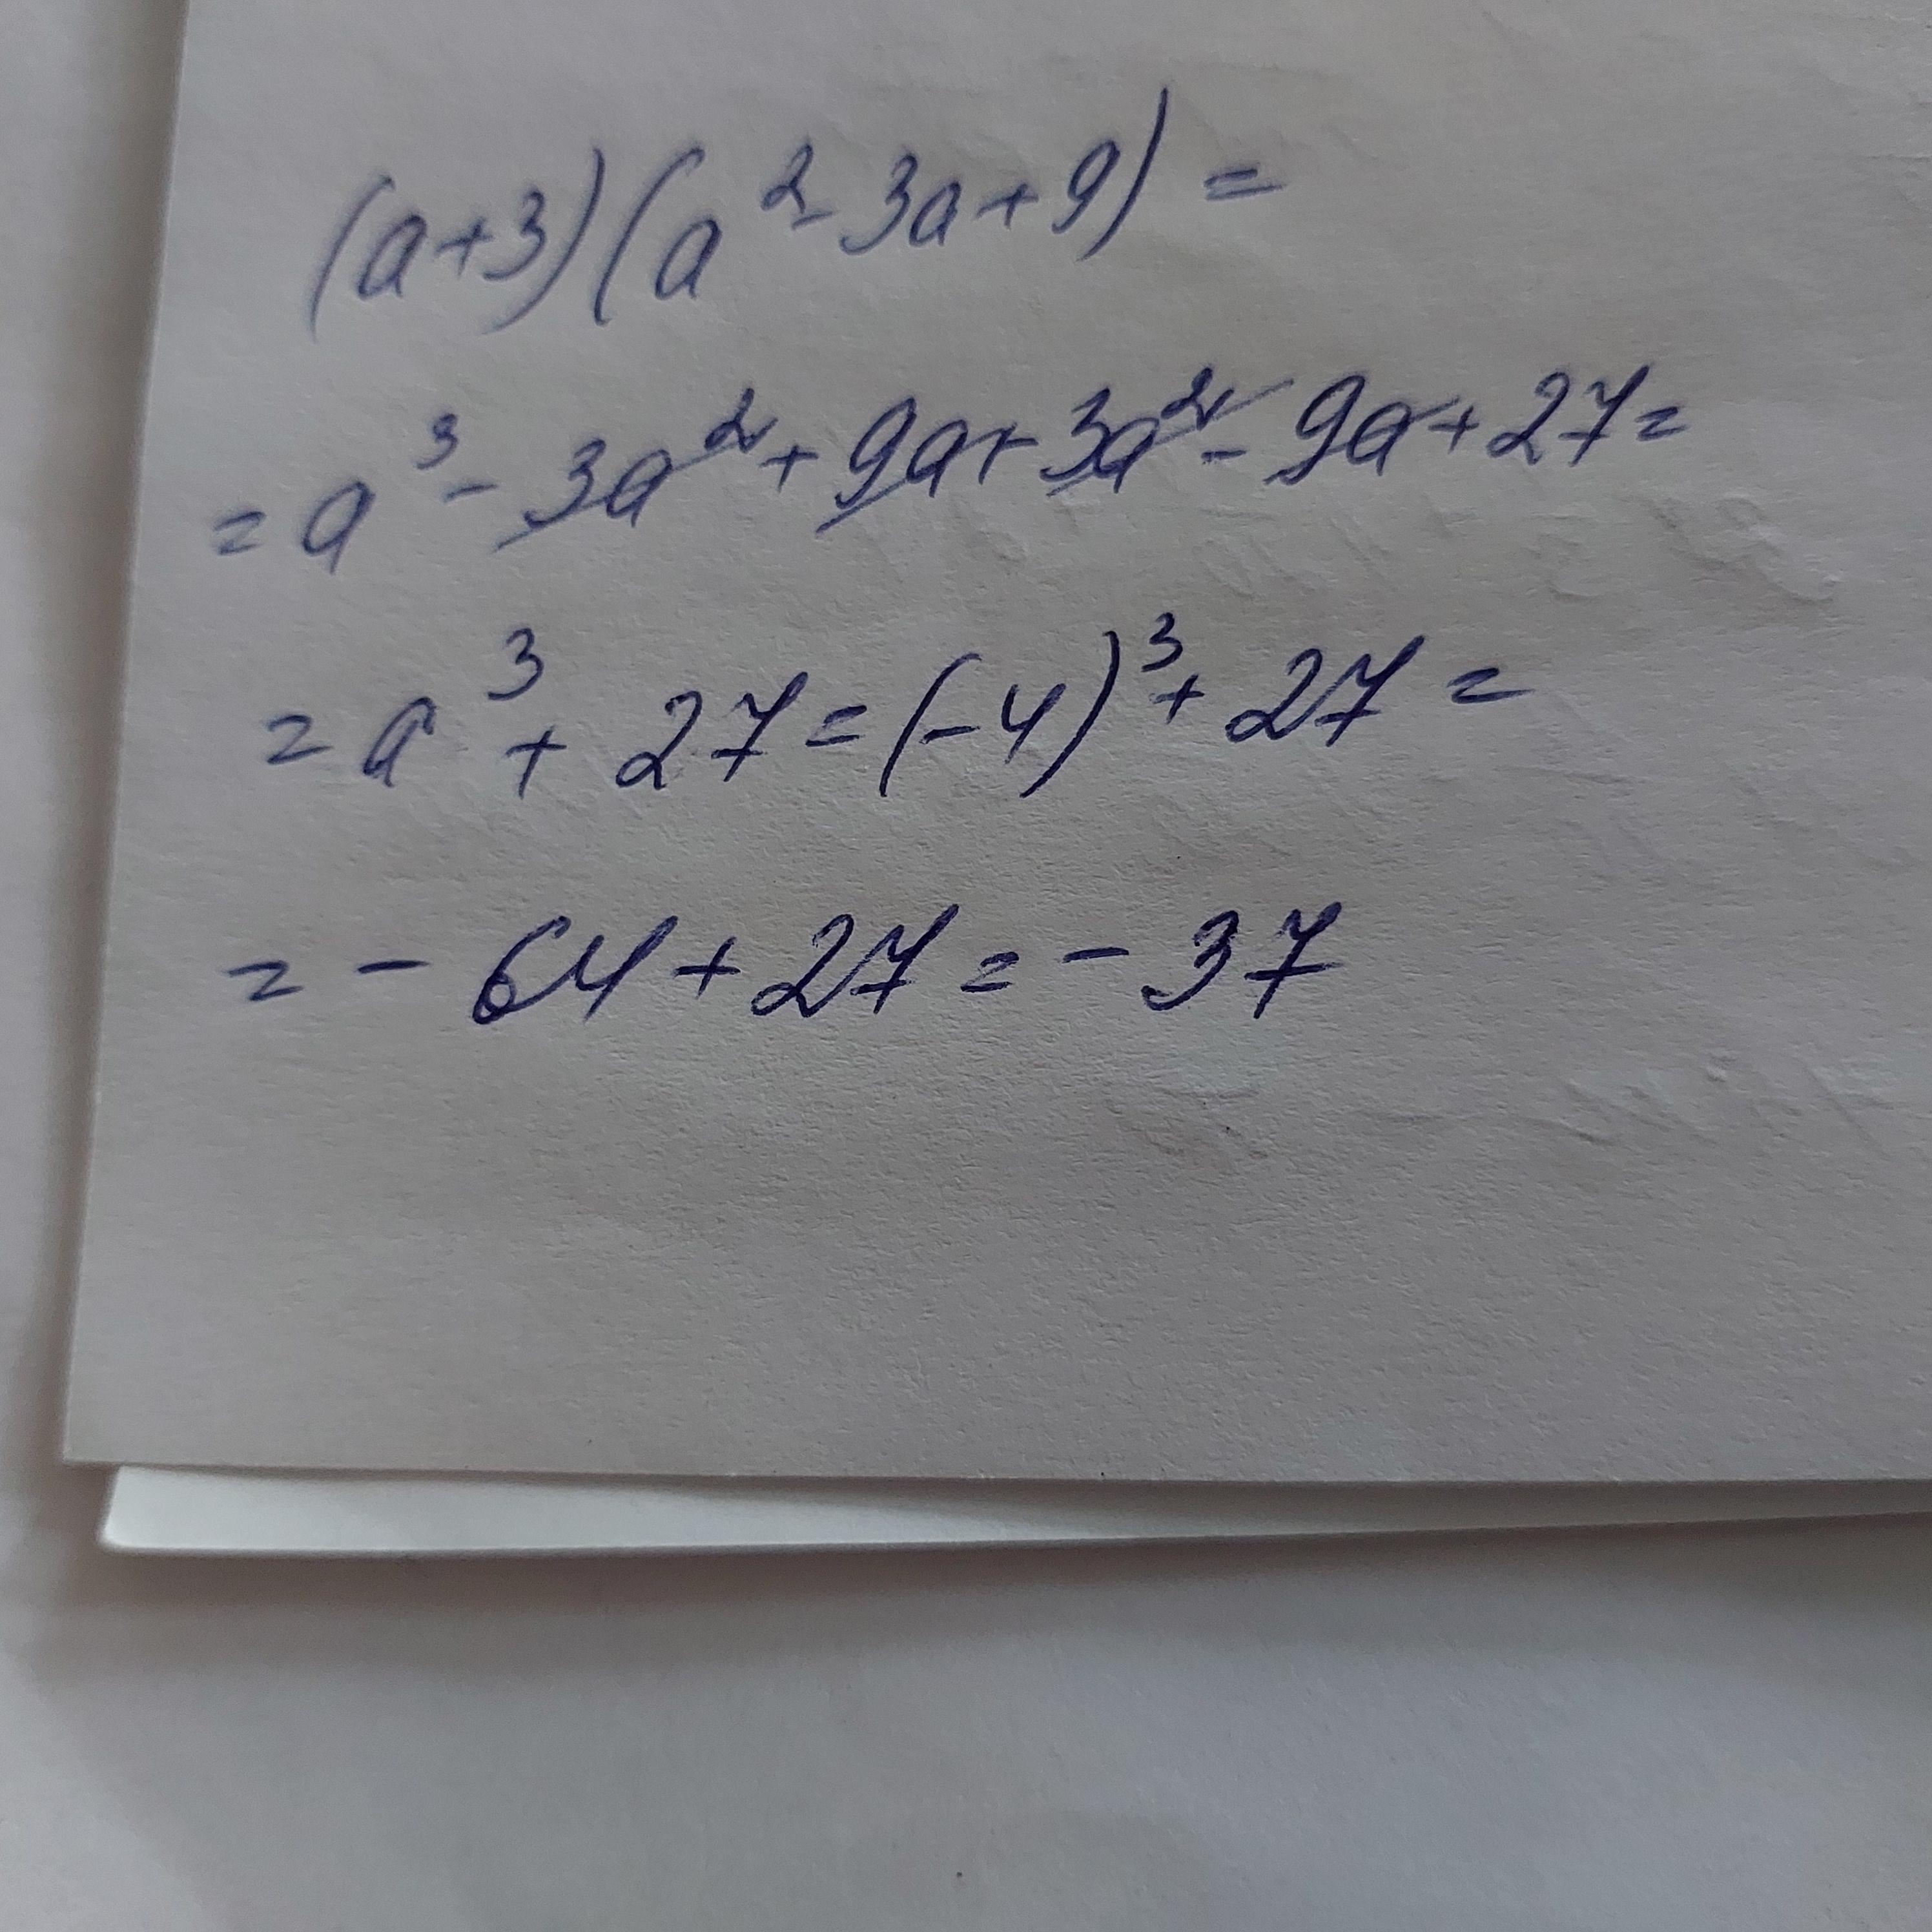 (a+3)(a²-3a+9)=
=a³-3a²+9a+3a²-9a+27=
=a³+27=(-4)³+27=
=-64+27=-37